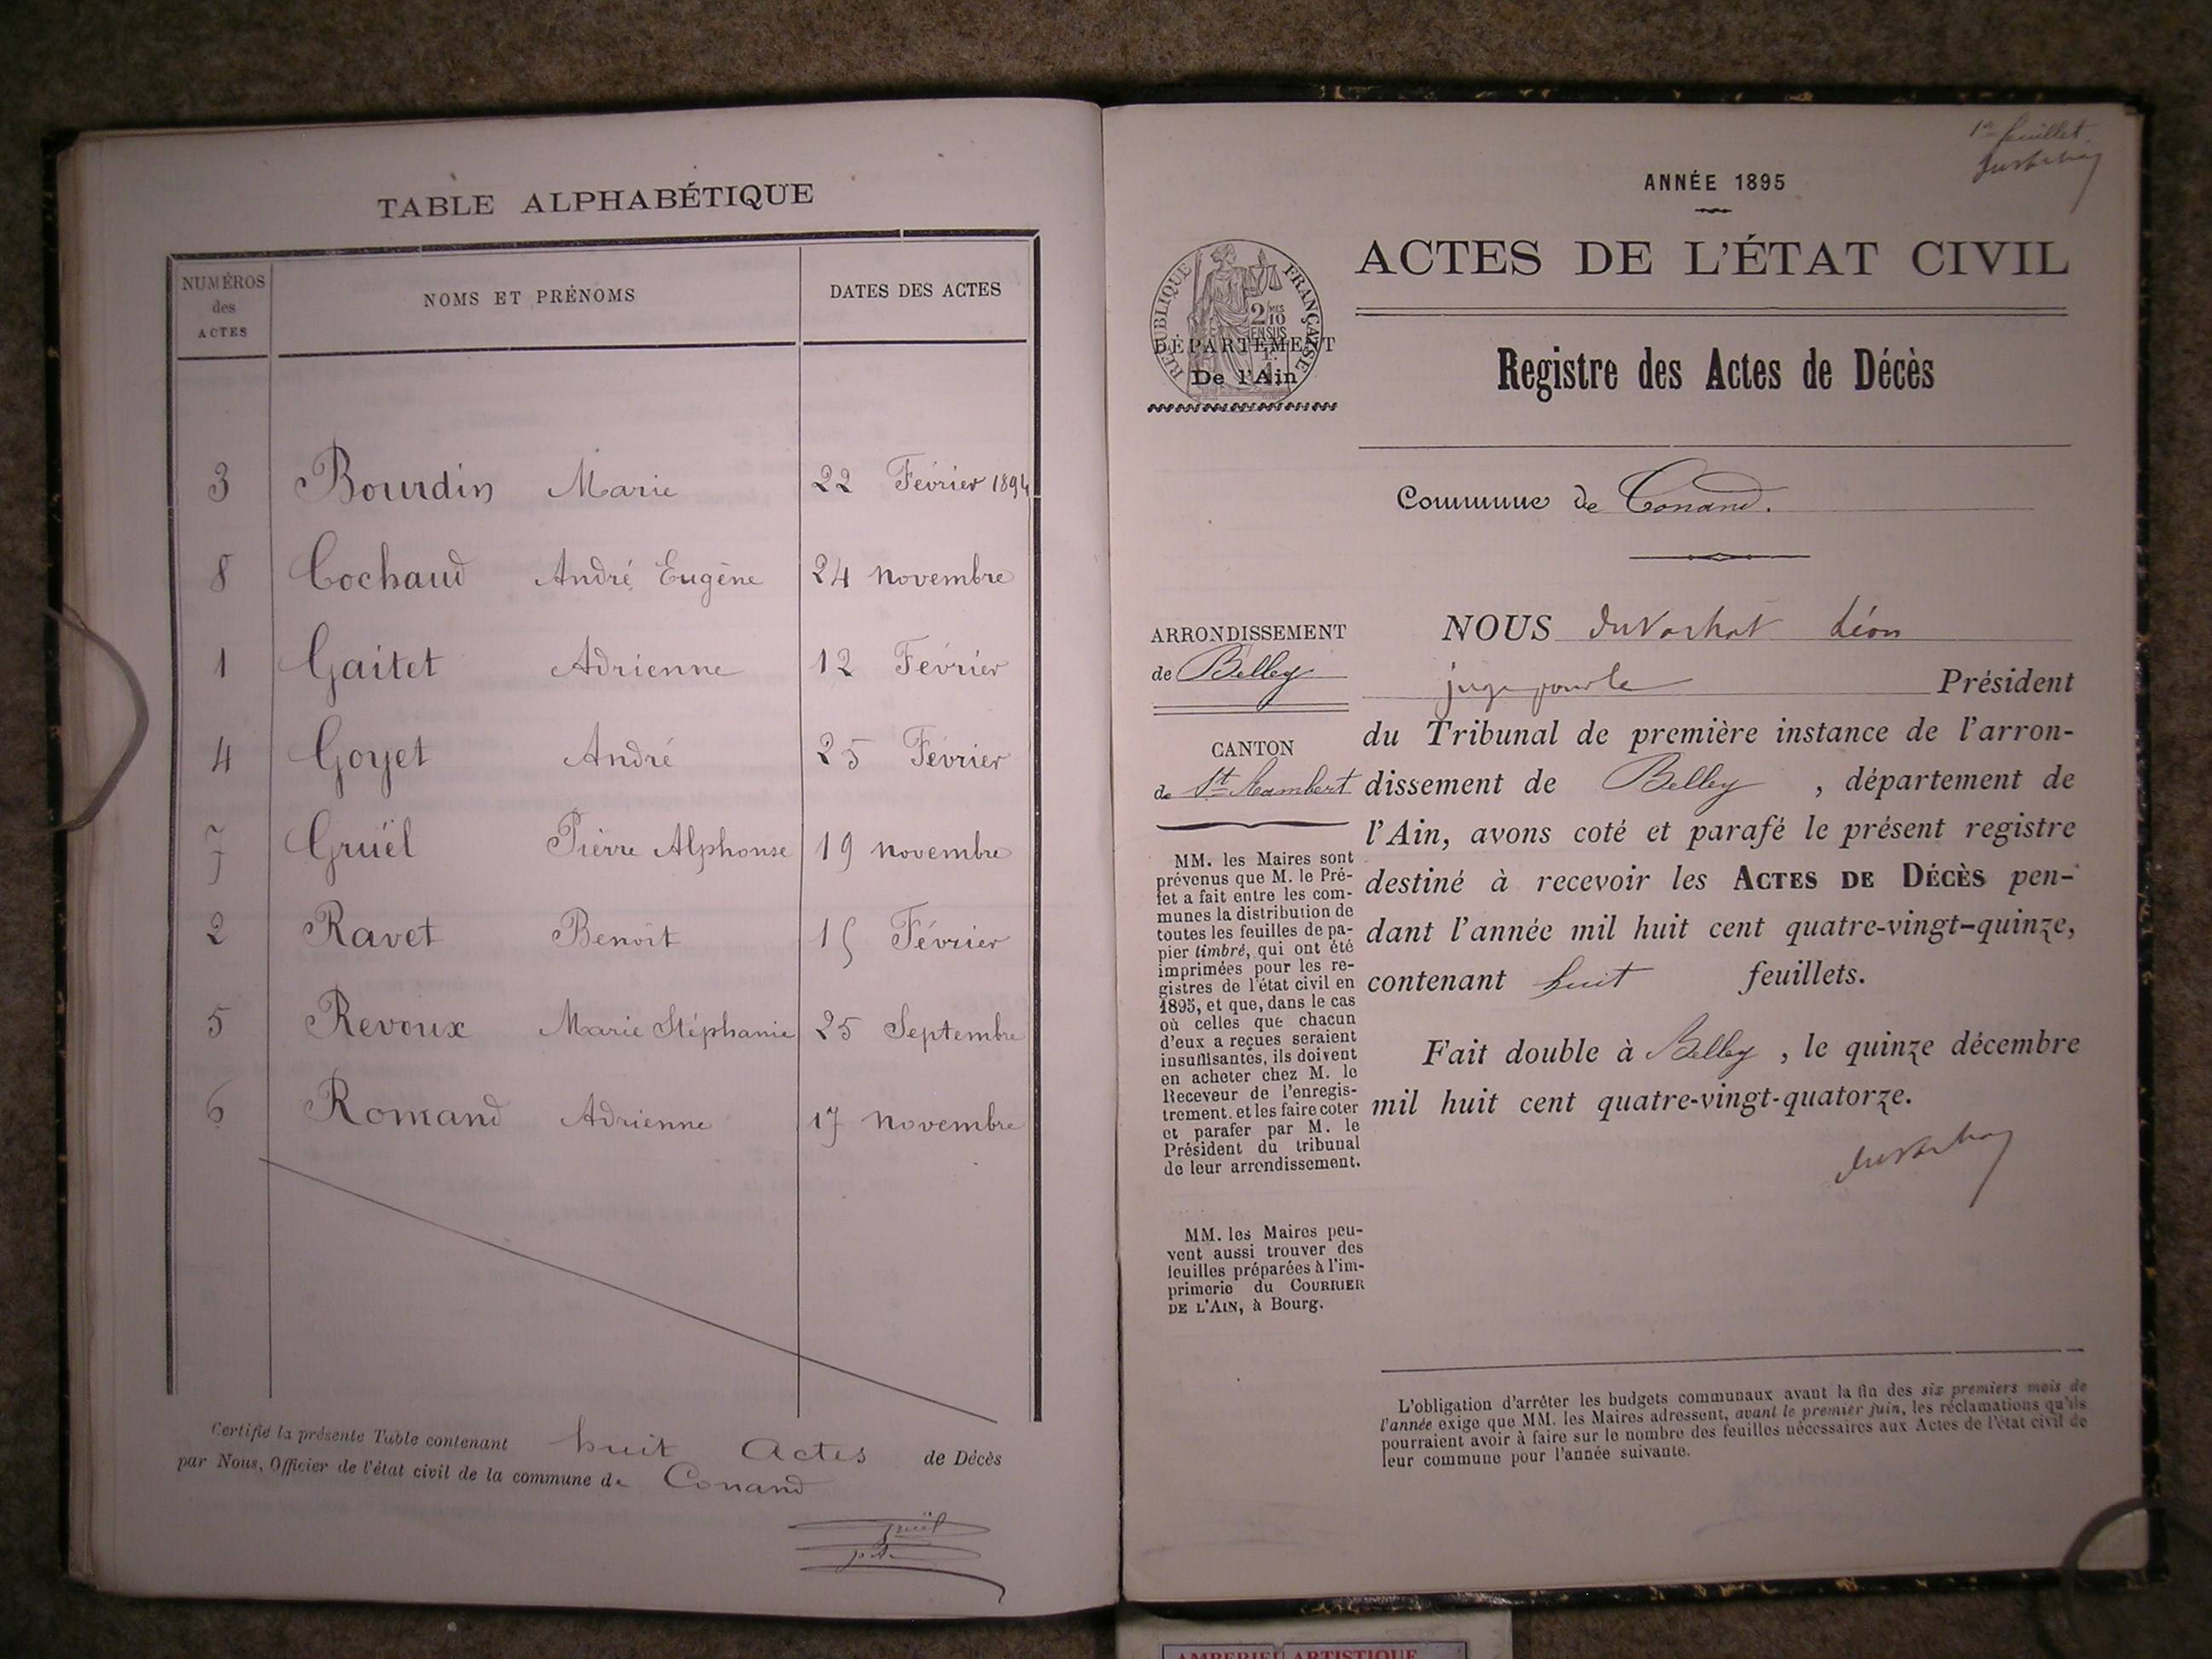 TABLE ALPHABÉTIQUE
NUMÉROS des ACTES
NOMS ET PRÉNOMS
DATES DES ACTES
3 Bourdin Marie 22 Février 1894
8 Cochaud André Eugène 24 novembre
1 Gaitet Adrienne 12 Février
4 Goyet André 25 Février
7 Gruël Pierre Alphonse 19 novembre
2 Ravet Benoit 15 Février
5 Revoux Marie Stéphanie 25 Septembre
6 Romand Adrienne 17 novembre
Certifié la présente Table contenant huit Actes de Décès
par Nous, Officier de l'état civil de la commune de Conand
gruël
1er feuillet
ANNÉE 1895
ACTES DE L'ÉTAT CIVIL
RÉPUBLIQUE FRANÇAISE
DÉPARTEMENT
De l'Ain
Registre des Actes de Décès
Commune de Conand.
ARRONDISSEMENT
de Belley
CANTON
de St Rambert
MM. les Maires sont
prévenus que M. le Pré-
fet a fait entre les com-
munes la distribution de
toutes les feuilles de pa-
pier timbré, qui ont été
imprimées pour les re-
gistres de l'état civil en
1895, et que, dans le cas
où celles que chacun
d'eux a reçues seraient
insuffisantes, ils doivent
en acheter chez M. le
Receveur de l'enregis-
trement. et les faire coter
et parafer par M. le
Président du tribunal
de leur arrondissement.
MM. les Maires peu-
vent aussi trouver des
feuilles préparées à l'im-
primerie du COURRIER
DE L'AIN, à Bourg.
NOUS Léon
juge pour le Président
du Tribunal de première instance de l'arron-
dissement de Belley , département de
l'Ain, avons coté et parafé le présent registre
destiné à recevoir les ACTES DE DÉCÈS pen-
dant l'année mil huit cent quatre-vingt-quinze,
contenant huit feuillets.
Fait double à Belley , le quinze décembre
mil huit cent quatre-vingt-quatorze.
L'obligation d'arrêter les budgets communaux avant la fin des six premiers mois de
l'année exige que MM. les Maires adressent, avant le premier juin, les réclamations qu'ils
pourraient avoir à faire sur le nombre des feuilles nécessaires aux Actes de l'état civil de
leur commune pour l'année suivante.
AMBERIEU ARTISTIQUE